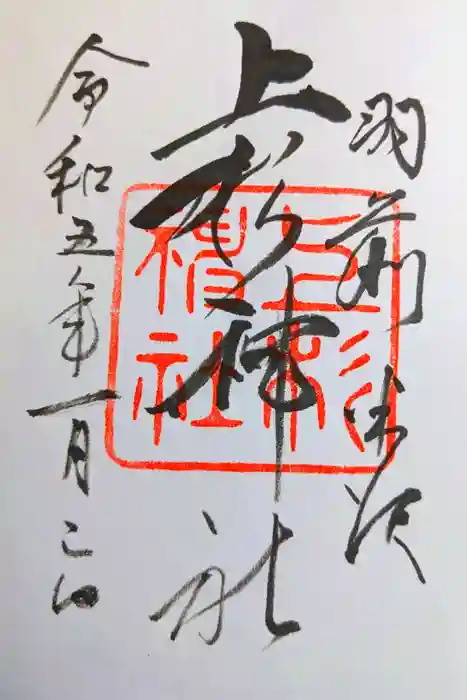 羽前米沢
上杉神社
上杉神社
令和五年一月二日